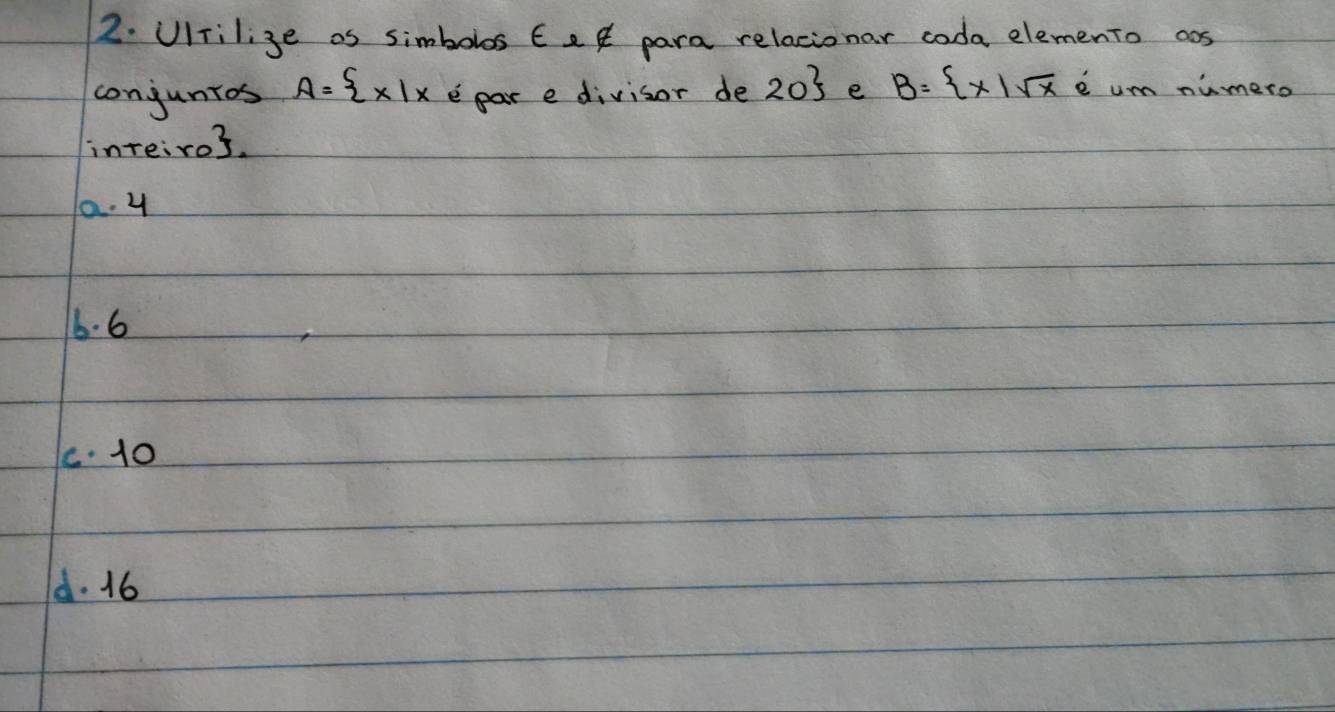 2. Ultilize os simbolos ∈ e ∉ para relacionar cada elemento aos
conjuntos A = {x | x é par e divisor de 20} e B = {x | √x é um número
inteiro}.
a. 4
b. 6
c. 10
d. 16